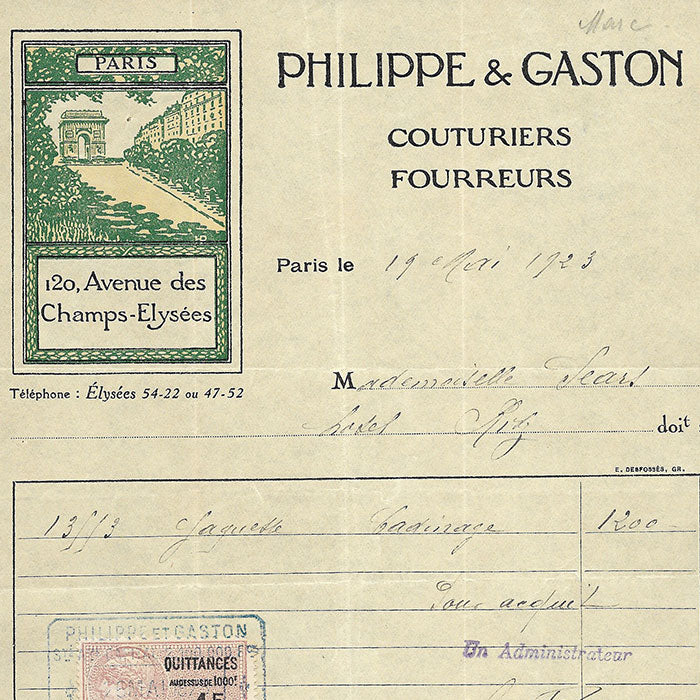 Marc
PARIS
PHILIPPE & GASTON
COUTURIERS
FOURREURS
120, Avenue des
Champs-Elysées
Paris le 19 Mai 1923
Téléphone : Élysées 54-22 ou 47-52
Mademoiselle Sears
hotel Ritz doit
E. DESFOSSÉS, GR.
Jaquette Badinage 1200
Pour acquit
PHILIPPE ET GASTON
Un Administrateur
QUITTANCES
AU DESSUS DE 1000F